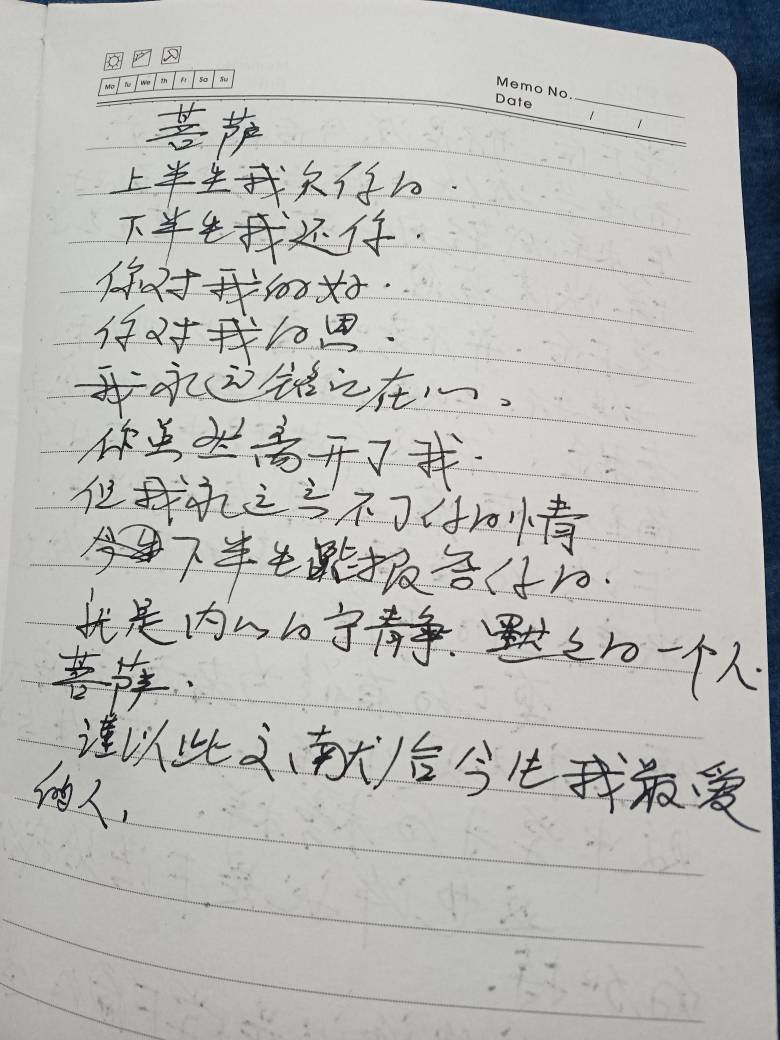 Mo Tu We Th Fr Sa Su
Memo No.
Date / /
菩萨
上半生我欠你的.
下半生我还你.
你对我的好.
你对我的恩.
我永远铭记在心。
你虽然离开了我.
但我永远言不了你的情
今 下半生能报答你的.
就是内心的宁静. 默之的一个人.
菩萨.
谨以此文、献给今生我最爱
的人,